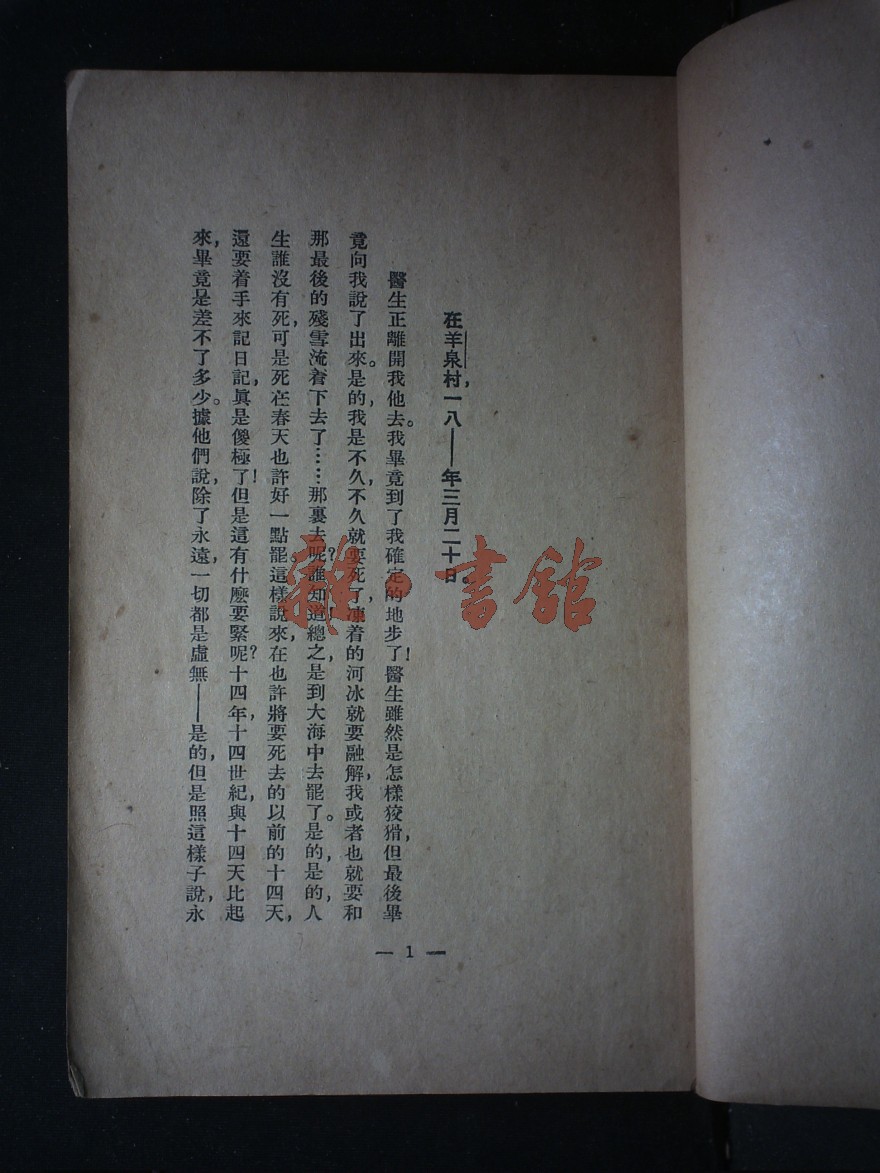 在羊泉村,一八——年三月二十日。
醫生正離開我他去。我畢竟到了我確定的地步了!醫生雖然是怎樣狡猾,但最後畢
竟向我說了出來。是的,我是不久,不久就要死了。凍着的河冰就要融解,我或者也就要和
那最後的殘雪流着下去了……那裏去呢?誰知道!總之,是到大海中去罷了。是的,是的,人
生誰沒有死,可是死在春天也許好一點罷。這樣說來,在也許將要死去的以前的十四天,
還要着手來記日記,眞是傻極了!但是這有什麼要緊呢?十四年,十四世紀,與十四天比起
來,畢竟是差不了多少。據他們說,除了永遠,一切都是虛無——是的,但是照這樣子說,永
— 1 —
雜·書館